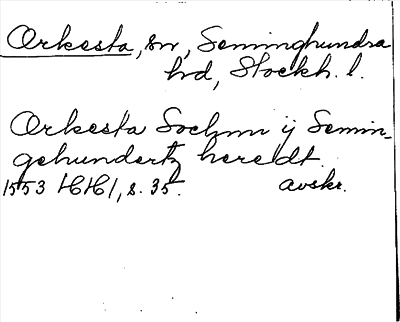 Orkesta, sn, Seminghundra
hd, Stockh. l.
Orkesta Sochnn ij Semin-
gehundertz heredt.
1553 HH1, s. 35. avskr.